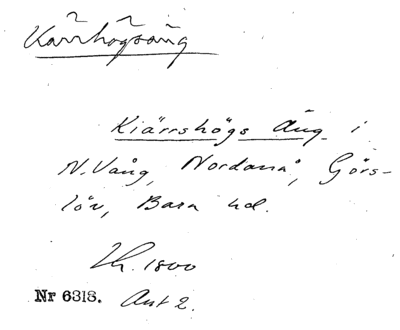 Kärrhögsäng
Kiärrshögs Äng i
N. Vång, Nordanå, Görs-
löv, Bara hd.
LK. 1800
Nr 6318. Akt 2.